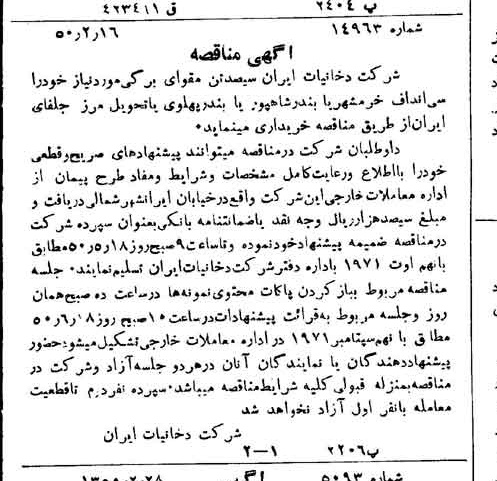 پ ۲۴۰۴ ق ۴۲۳۴۱۱
شماره ۱۴۹۶۳ ۵۰٫۲٫۱۶
آگهی مناقصه
شرکت دخانیات ایران سیصدتن مقوای برگی موردنیاز خودرا
سی‌اند‌اف خرمشهر یا بندرشاهپور یا بندرپهلوی یاتحویل مرز جلفای
ایران‌از طریق مناقصه خریداری مینماید۰
داوطلبان شرکت درمناقصه میتوانند پیشنهادهای صریح‌وقطعی
خودرا بااطلاع ورعایت‌کامل مشخصات وشرایط ومفاد طرح پیمان از
اداره معاملات خارجی‌این‌شرکت واقع‌درخیابان ایرانشهرشمالی‌دریافت و
مبلغ سیصدهزارریال وجه نقد یاضمانتنامه بانکی‌بعنوان سپرده شرکت
درمناقصه ضمیمه پیشنهادخودنموده وتاساعت ۹ صبح‌روز ۵۰٫۵٫۱۸ مطابق
بانهم اوت ۱۹۷۱ باداره دفترشرکت‌دخانیات‌ایران تسلیم‌نمایند۰ جلسه
مناقصه مربوط بباز کردن پاکات محتوی‌نمونه‌ها درساعت ده صبح‌همان
روز وجلسه مربوط به‌قرائت پیشنهادات‌درساعت ۱۰صبح روز ۵۰٫۶٫۱۸
مطابق با نهم‌سپتامبر ۱۹۷۱ در اداره معاملات خارجی‌تشکیل‌میشود۰حضور
پیشنهاددهندگان یا نمایندگان آنان درهردو جلسه‌آزاد وشرکت در
مناقصه‌بمنزله قبولی‌کلیه شرایط‌مناقصه میباشد۰سپرده نفردوم تاقطعیت
معامله بانفر اول آزاد نخواهد شد
شرکت دخانیات ایران
پ ۲۲۰۶ ۱–۲
شماره ۵۰۹۳ ۱۳۵۰٫۲٫۲۸